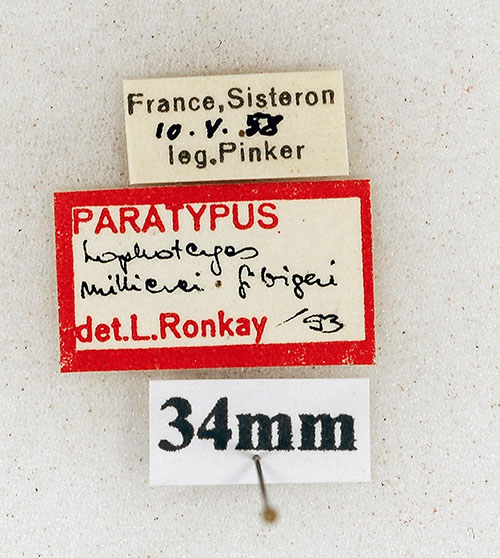 France, Sisteron
10. V. 58
leg. Pinker
PARATYPUS
Lophoterges
millierei fibigeri
det. L. Ronkay /93
34mm